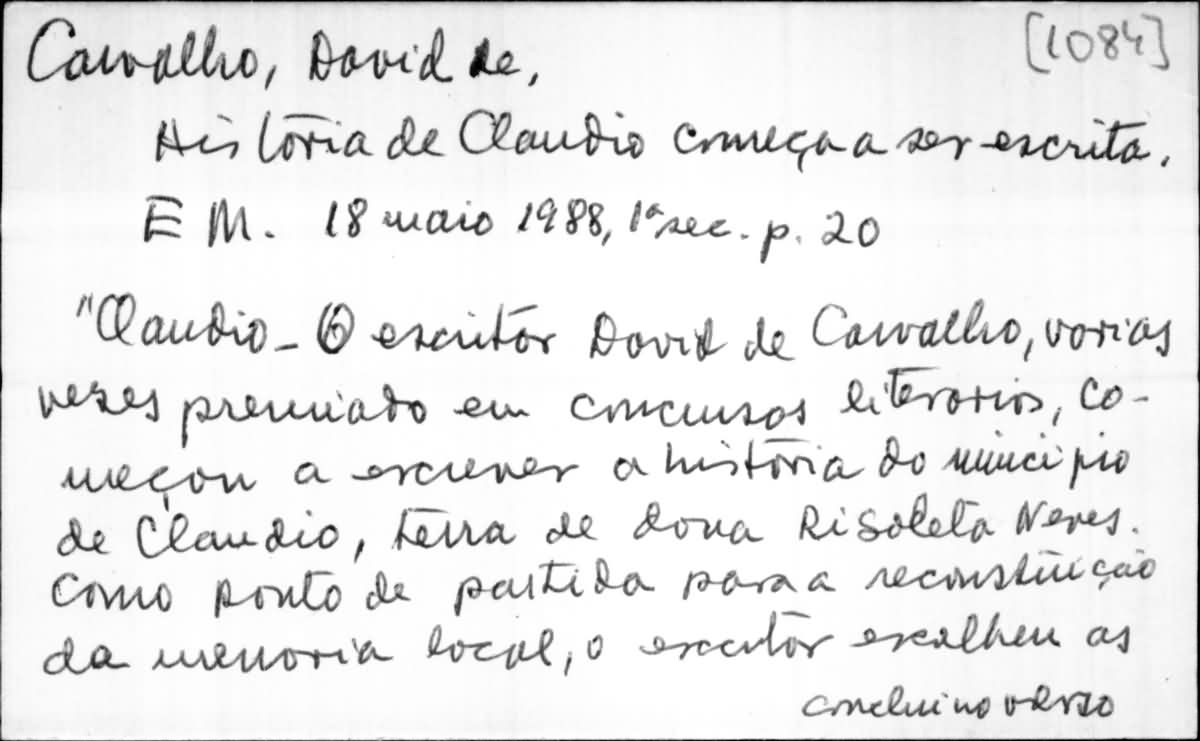 Carvalho, David de, [1084]
História de Claudio começa a ser escrita.
E M. 18 maio 1988, 1ª sec. p. 20
"Claudio - O escritor David de Carvalho, varias
vezes premiado em concursos literarios, co-
meçou a escrever a história do municipio
de Claudio, terra de dona Risoleta Neves.
Como ponto de partida para a reconstituição
da memoria local, o escritor escolheu as
conclui no verso